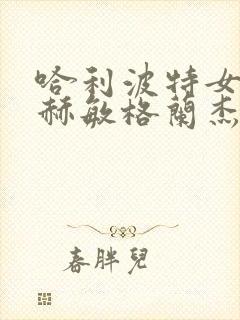 哈利波特女
赫敏格蘭杰
春胖兒